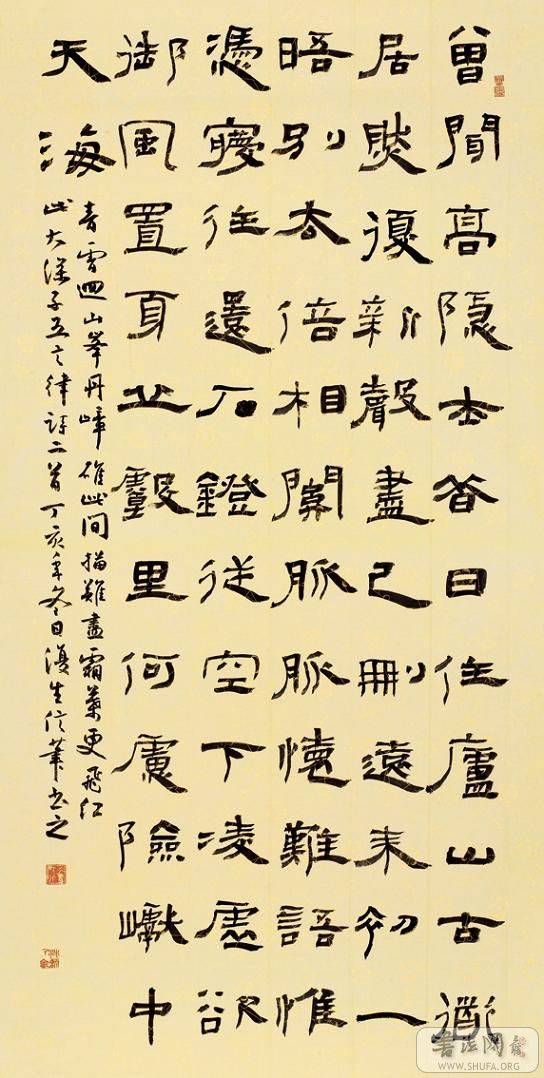 曾聞高隱士昔日住廬山古道
居然復新聲盡已刪遠来初一
晤別去倍相關脈脈懷難語惟
憑夢往還石鐙從空下凌虛欲
御風置身丘壑里何慮險巇中
天海
青雲迴山峯丹嶂雄此間描難盡霜葉更飛紅
此大滌子五言律詩二首丁亥年冬日漫生信筆書之
書法網
WWW.SHUFA.ORG